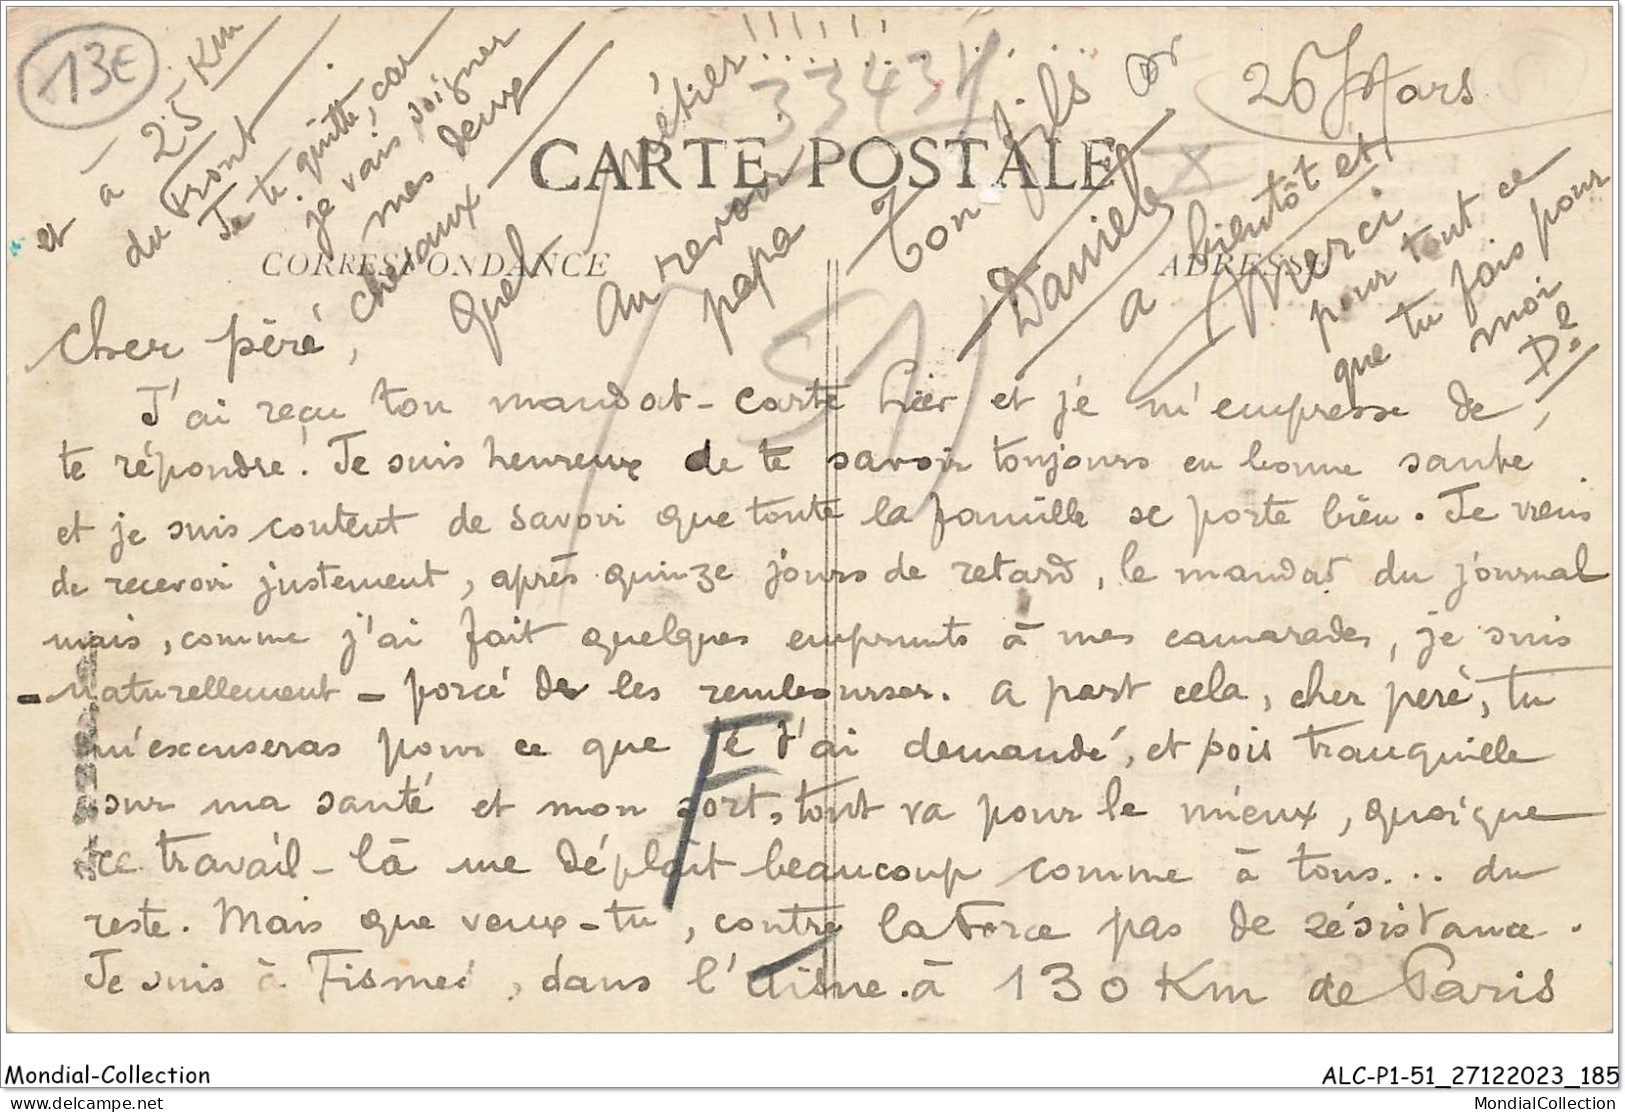 13E
33431
26 Mars
CARTE POSTALE
CORRESPONDANCE
ADRESSE
Cher père,
J'ai reçu ton mandat-carte hier et je m'empresse de
te répondre. Je suis heureux de te savoir toujours en bonne santé
et je suis content de savoir que toute la famille se porte bien. Je viens
de recevoir justement, après quinze jours de retard, le mandat du journal
mais, comme j'ai fait quelques emprunts à mes camarades, je suis
-naturellement- forcé de les rembourser. A part cela, cher père, tu
m'excuseras pour ce que je t'ai demandé, et sois tranquille
sur ma santé et mon sort, tout va pour le mieux, quoique
ce travail-là me déplaît beaucoup comme à tous... du
reste. Mais que veux-tu, contre la force pas de résistance.
Je suis à Fismes, dans l'Aisne. à 130 Km de Paris
et à 25 Km
du front.
Je te quitte, car
je vais soigner
mes deux
chevaux
Quel métier!!!!!!
Au revoir
papa
Ton fils
Daniel
A bientôt et
Merci
pour tout ce
que tu fais pour
moi
Dl
F
Mondial-Collection
ALC-P1-51_27122023_185
delcampe.net
MondialCollection